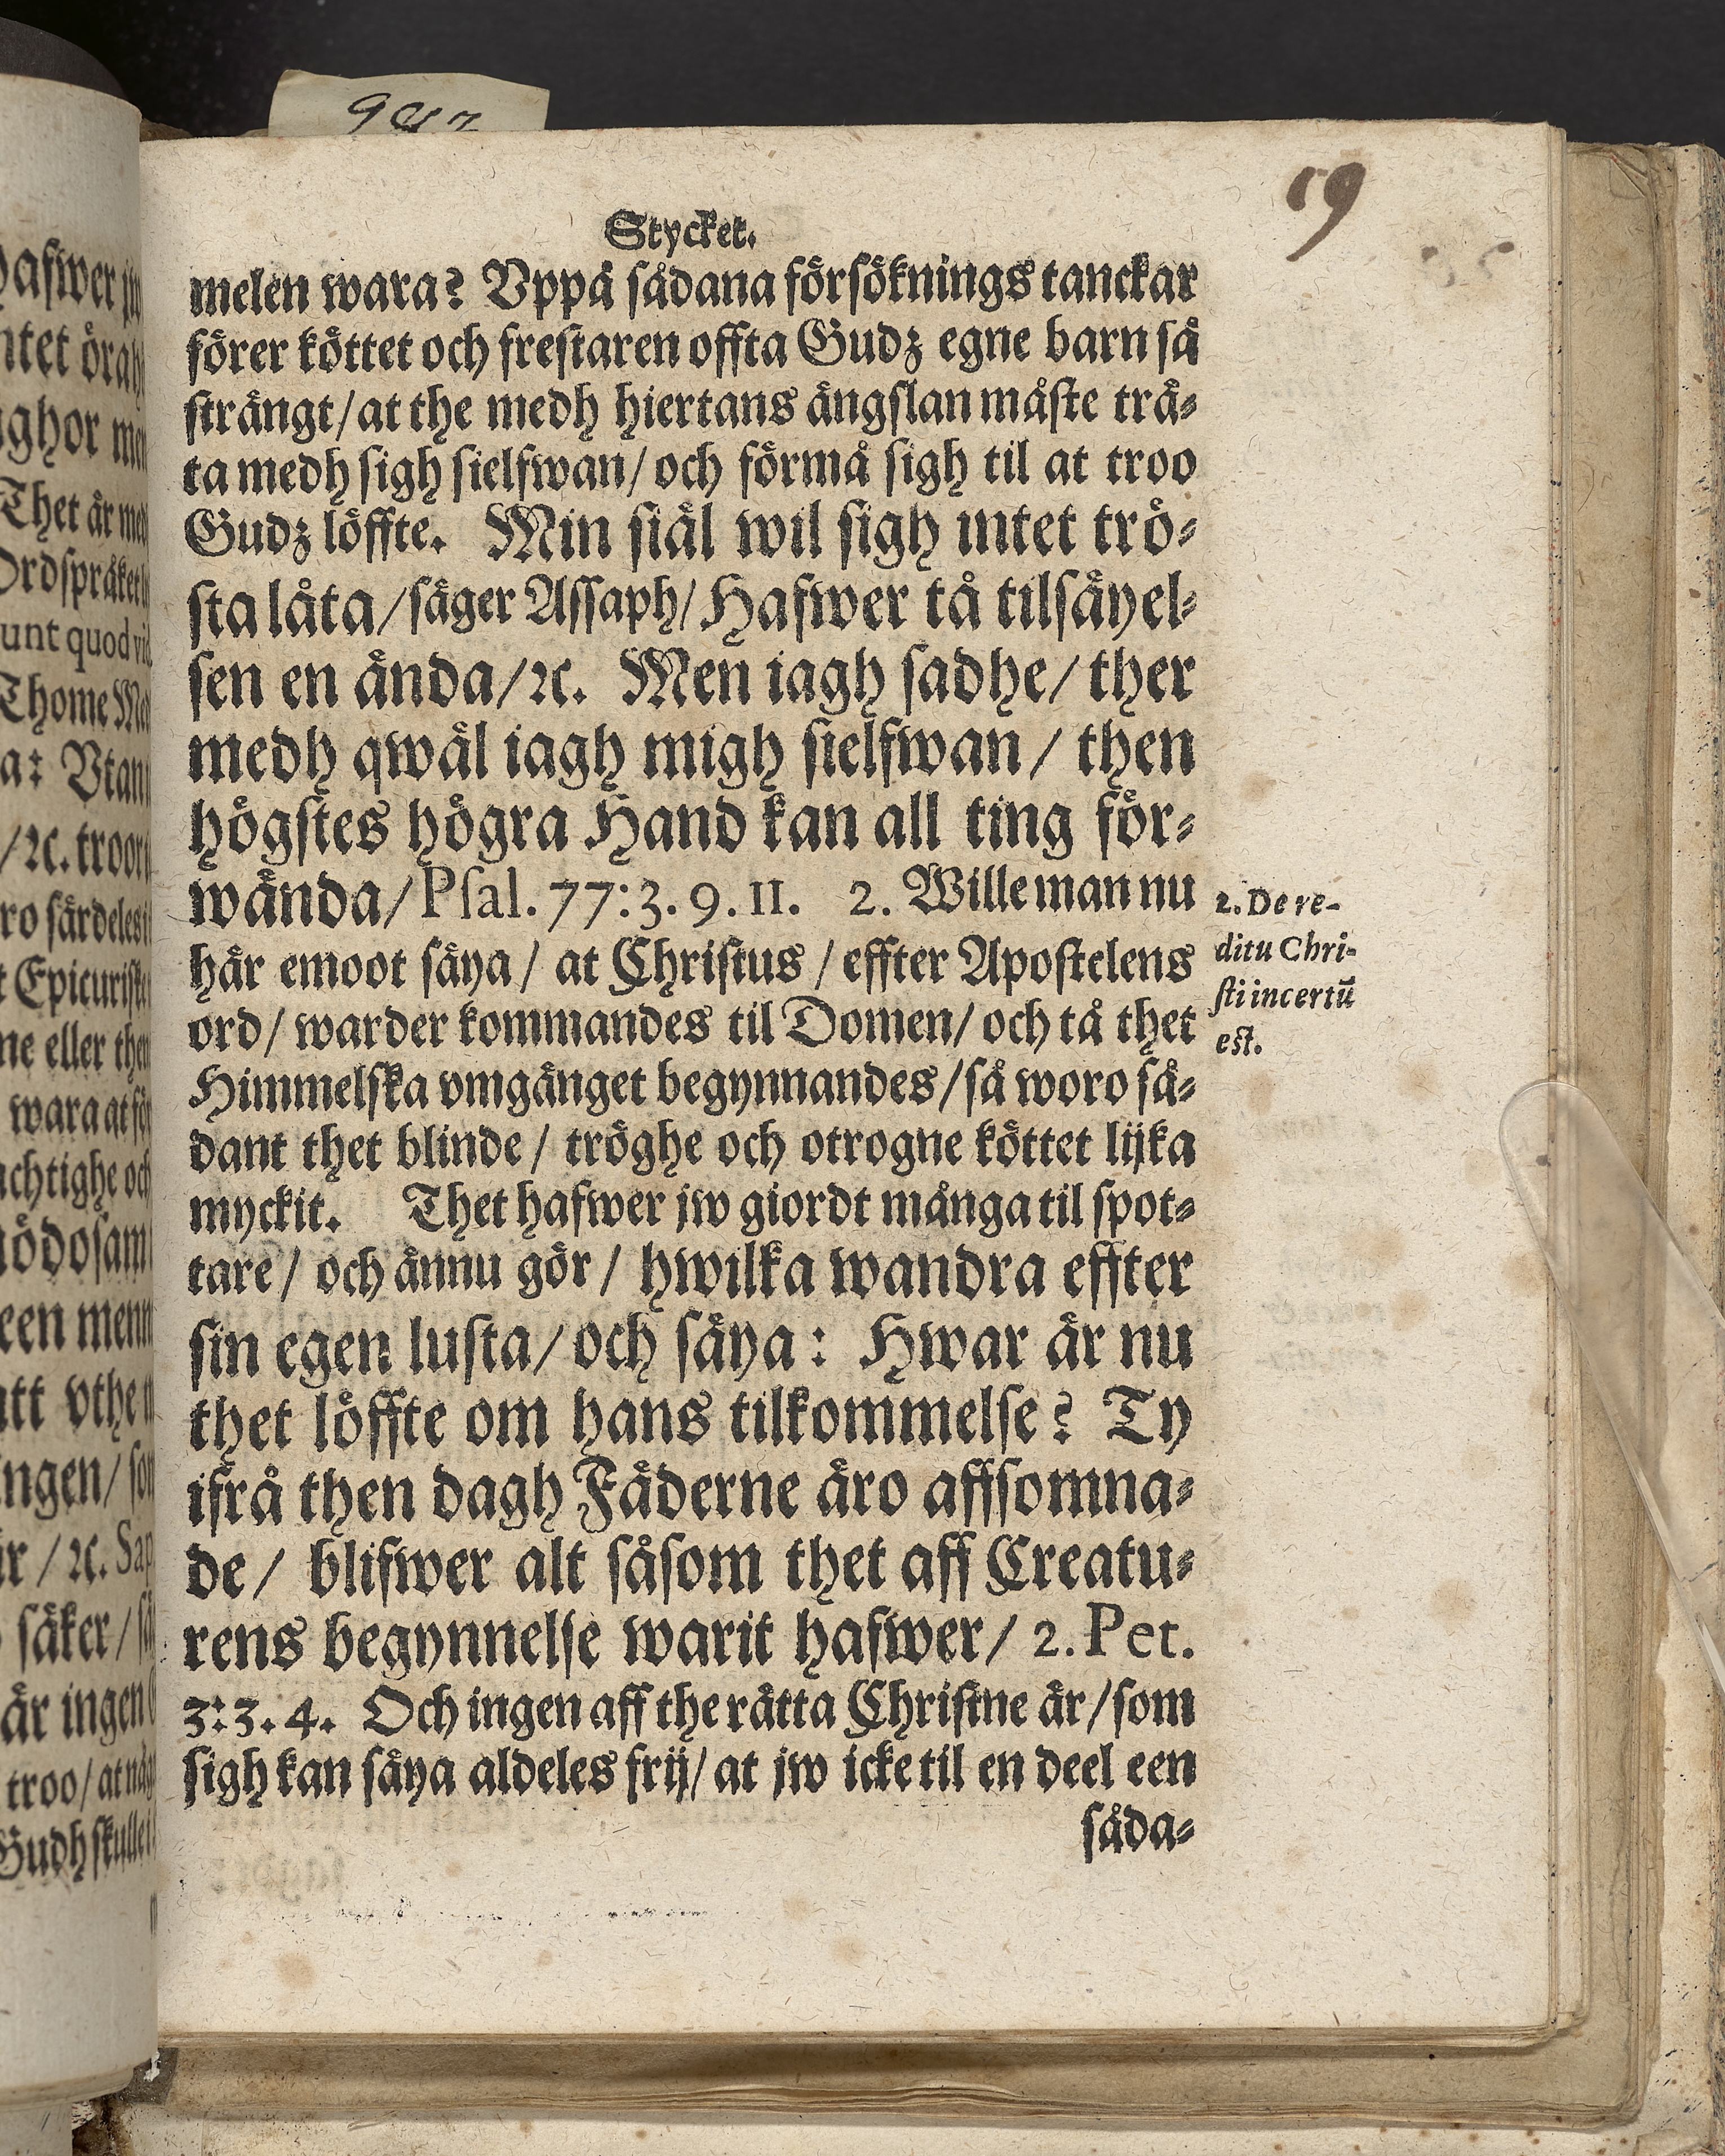 19
Stycket.
melen wara? Vppå sådana försöknings tanckar
förer köttet och frestaren offta Gudz egne barn så
strängt/at the medh hiertans ängslan måste trä-
ta medh sigh sielfwan/och förmå sigh til at troo
Gudz löffte. Min siäl wil sigh intet trö-
sta låta/säger Assaph/Hafwer tå tilsäyel-
sen en ända/ꝛc. Men iagh sadhe/ther
medh qwäl iagh migh sielfwan/then
högstes högra Hand kan all ting för-
wända/Psal.77:3.9.11. 2. Wille man nu
här emoot säya/at Christus/effter Apostelens
ord/warder kommandes til Domen/och tå thet
Himmelska vmgänget begynnandes/så woro så-
dant thet blinde/tröghe och otrogne köttet lijka
myckit. Thet hafwer jw giordt många til spot-
tare/och ännu gör/hwilka wandra effter
sin egen lusta/och säya: Hwar är nu
thet löffte om hans tilkommelse? Ty
ifrå then dagh Fäderne äro affsomna-
de/blifwer alt såsom thet aff Creatu-
rens begynnelse warit hafwer/2.Pet.
3:3.4. Och ingen aff the rätta Christne är/som
sigh kan säya aldeles frij/at jw icke til en deel een
såda-
2. De re-
ditu Chri-
sti incertũ
est.